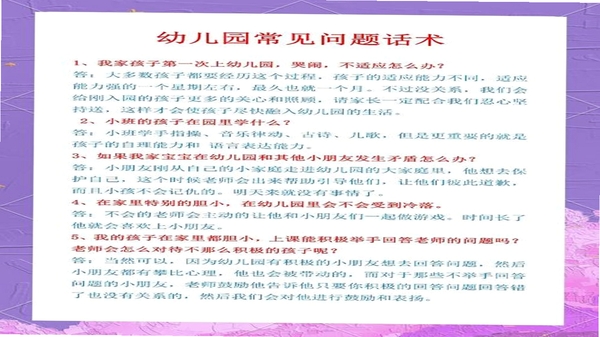 幼儿园常见问题话术
1、我家孩子第一次上幼儿园，哭闹，不适应怎么办？
答：大多数孩子都要经历这个过程，孩子的适应能力不同，适应
能力强的一个星期左右，最久也就一个月。不过没关系，我们会
给刚入园的孩子更多的关心和照顾，请家长一定配合我们忍心坚
持送，这样才会使孩子尽快融入幼儿园的生活。
2、小班的孩子在园里学什么？
答：小班学手指操、音乐律动、古诗、儿歌，但是更重要的就是
孩子的自理能力和 语言表达能力。
3、如果我家宝宝在幼儿园和其他小朋友发生矛盾怎么办？
答：小朋友刚从自己的小家庭走进幼儿园的大家庭里，他想去保
护自己，这个时候老师会出来帮助引导他们，让他们彼此道歉，
而且小孩不会记仇的。明天来就没有事情了。
4、在家里特别的胆小，在幼儿园里会不会受到冷落。
答：不会的老师会主动的让他和小朋友们一起做游戏。时间长了
他就会喜欢上小朋友。
5、我的孩子在家里都胆小，上课能积极举手回答老师的问题吗？
老师会怎么对待不那么积极的孩子呢？
答：当然可以，因为幼儿园有积极的小朋友想去回答问题，然后
小朋友都有攀比心理，他也会被带动的，而对于那些不举手回答
问题的小朋友，老师鼓励他告诉他只要你积极的回答问题回答错
了也没有关系的，然后我们会对他进行鼓励和表扬。